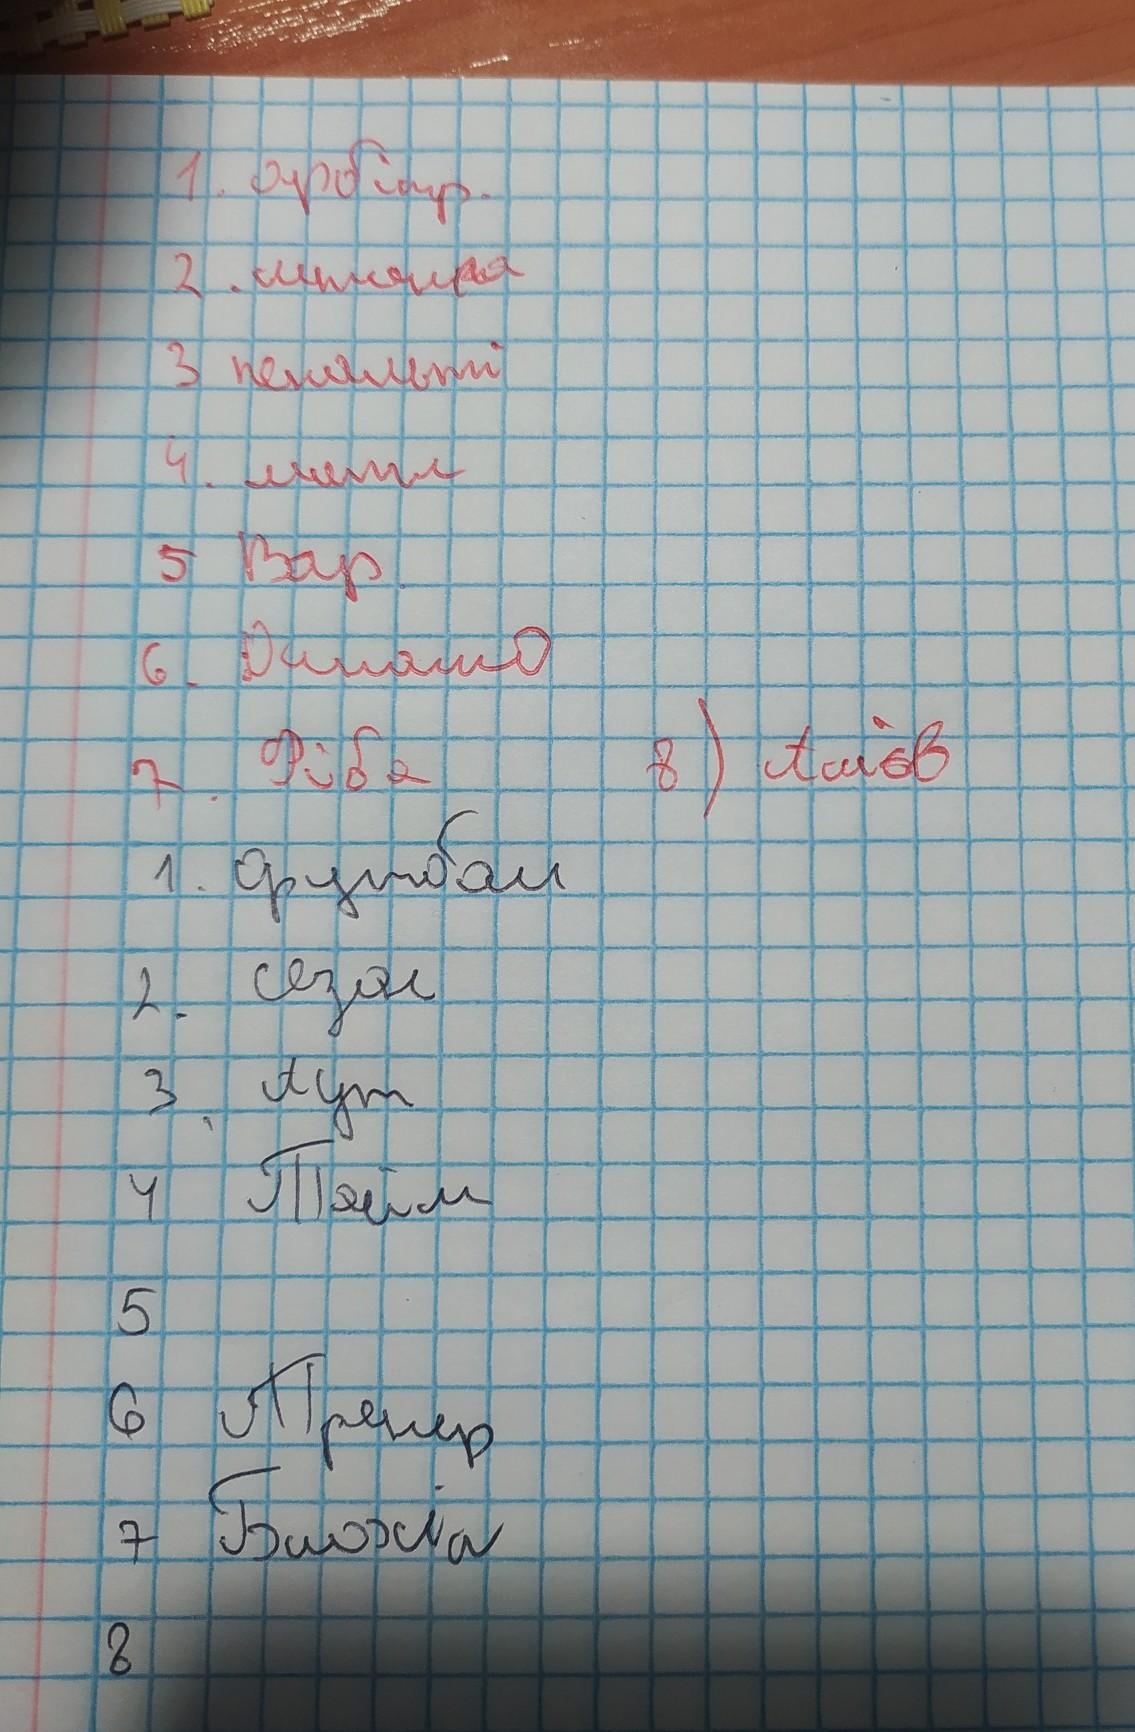 1. арбітр.
2.
3 пенальті
4. матч
5 Вар.
6. Динамо
7. Ріба 8) Ашів
1. футбол
2. сезон
3. Аут
4 Тайм
5
6 Тренер
7 Блохін
8